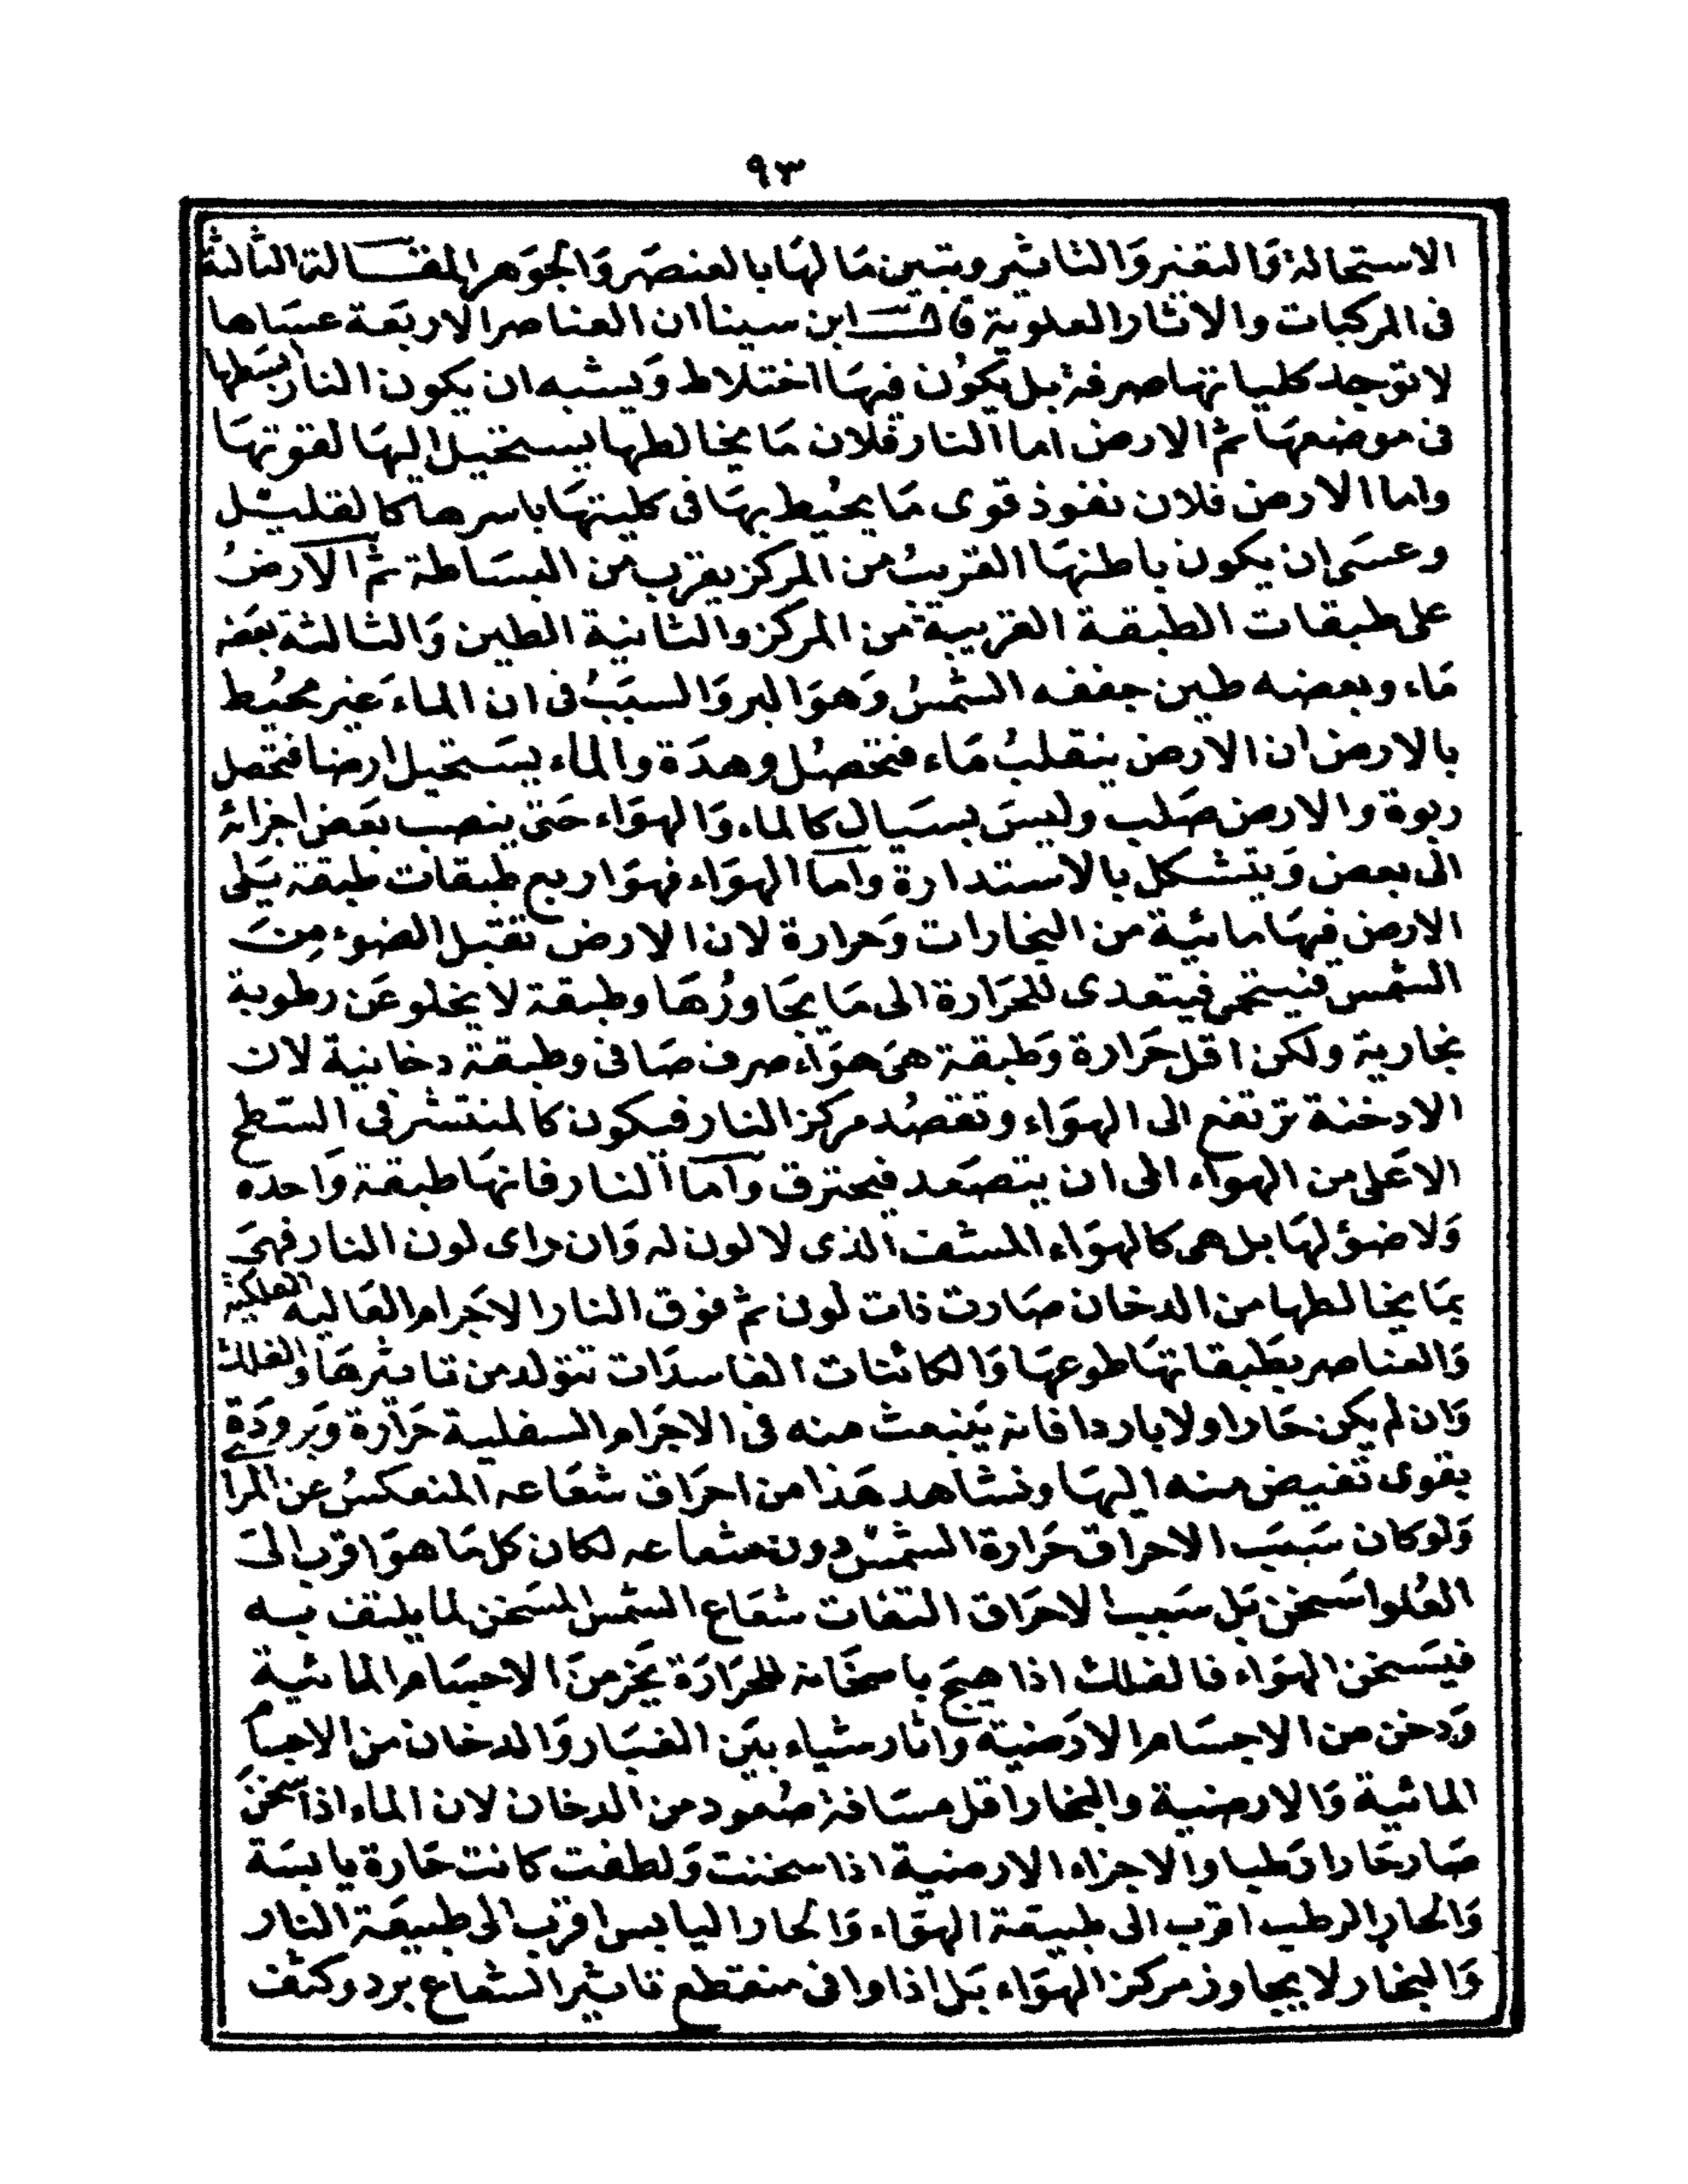 ٩٣
الاستحالة وَالتغير وَالتاثير ويتبين مَا لهَا بالعنصَر وَالجوَهر المقـــالة الثالثة
فى المركبات والاثار العلوية قالـــ ابن سينا ان العناصر الاربعَة عسَاها
لا توجد كلياتها صرفة بل يكوُن فيهَا اختلاط وَيشبه ان يكون النار ابسَطها
فى موضعهَا ثم الارض اما النار فلان مَا يخالطها يستحيل اليهَا لقوتهَا
واما الارض فلان نفوذ قوى مَا يحيُط بهَا فى كليتهَا باسرها كالقليل
وعسَى ان يكون باطنهَا القريبُ من المركز يقرب من البسَاطة ثم الارضُ
على طبقات الطبقة القريبة من المركز والثانية الطين وَالثالثة بعَضه
مَاء وبعضه طين جففه الشمسُ وَهوَ البر وَالسبَبُ فى ان الماءَ غير محيُط
بالارض ان الارض ينقلبُ مَاء فتحصُل وهدَة والماء يسَتحيل ارضا فتحصل
ربوة والارض صَلب وليسَ بسَيال كالماء وَالهوَاء حَتى ينصب بعَض اجزائه
الى بعض وَيتشكل بالاستدارة واما الهوَاء فهوَ اربع طبقات طبقة يَلى
الارض فيهَا مائية من البخارات وَحرارة لان الارض تقبل الضوء مِنَ
الشمس فيستحمى فيتعدى للحَرَارة الى مَا يجَاورُهَا وطبقة لا يخلو عَن رطوبة
بخارية ولكن اقل حَرَارة وَطبقة هىَ هوَاء صرف صَافى وطبقة دخانية لان
الادخنة ترتفع الى الهوَاء وتقصُد مركز النار فيكون كالمنتشر فى السّطح
الاعَلى من الهواء الى ان يتصَعد فيحترق واما النار فانهَا طبقة وَاحده
وَلا ضؤ لهَا بل هى كالهوَاء المشف الذى لا لون له وَان راى لون النار فهىَ
بمَا يخالطها من الدخان صَارت ذات لون ثم فوق النار الاجَرام العَاليه الفلكية
وَالعناصر بطَبقاتهَا طوعهَا وَالكائنات الفاسدَات تتولد من تاثيرهَا والفلك
وَان لم يكن حَارا ولا باردا فانه يَنبعث منه فى الاجَرام السفلية حَرَارة وَبَرودَة
بقوى تفيض منه اليهَا ونشاهد هَذا من احرَاق شعَاعه المنعكسُ عن المرا
وَلو كان سَبَبَ الاحراق حَرَارة الشمسُ دون شعَاعه لكان كل مَا هوَ اقرب الىَ
العُلو اسَخن بَل سَبب الاحرَاق التفات شعَاع الشمس المسَخن لما يلتف به
فيسَخن الهوَاء فالفلك اذا هيجَ باسخانه للحَرَارَة بخر منَ الاجسَام المائية
وَدخن من الاجسَام الارَضية وَاثار شياء بيَن الغبَار وَالدخان من الاجسام
المائية وَالارضية والبخار اقل مسَافة صُعود من الدخان لان الماء اذا سخنَ
صَار حَارا رَطبا والاجزاء الارضية اذا سخنت وَلطفت كانت حَارة يابسَة
وَالحار الرطب اقرب الى طبيعَة الهوَاء وَالحار اليابس اقرَب الى طبيعَة النار
وَالبخار لا يجاوز مركز الهوَاء بَل اذا وافى منقطع تاثير الشعاع برد وكثف